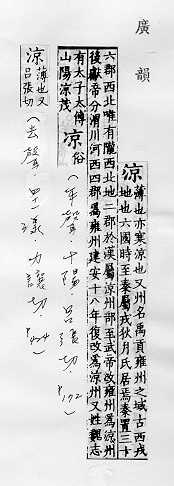 廣韻
涼薄也亦寒涼也又州名禹貢雍州之域古西戎
地也六國時至秦屬戎狄月氏居焉秦置三十
六郡西北唯有隴西北地二郡於漢屬涼州部至武帝改雍州爲涼州
後獻帝分渭川河西四郡爲雍州建安十八年復改爲涼州又姓魏志
有太子太傅
山陽涼茂
凉俗
（平聲．十陽．呂張切．P.172
涼薄也又
呂張切
（去聲．四一漾．力讓切．P.424